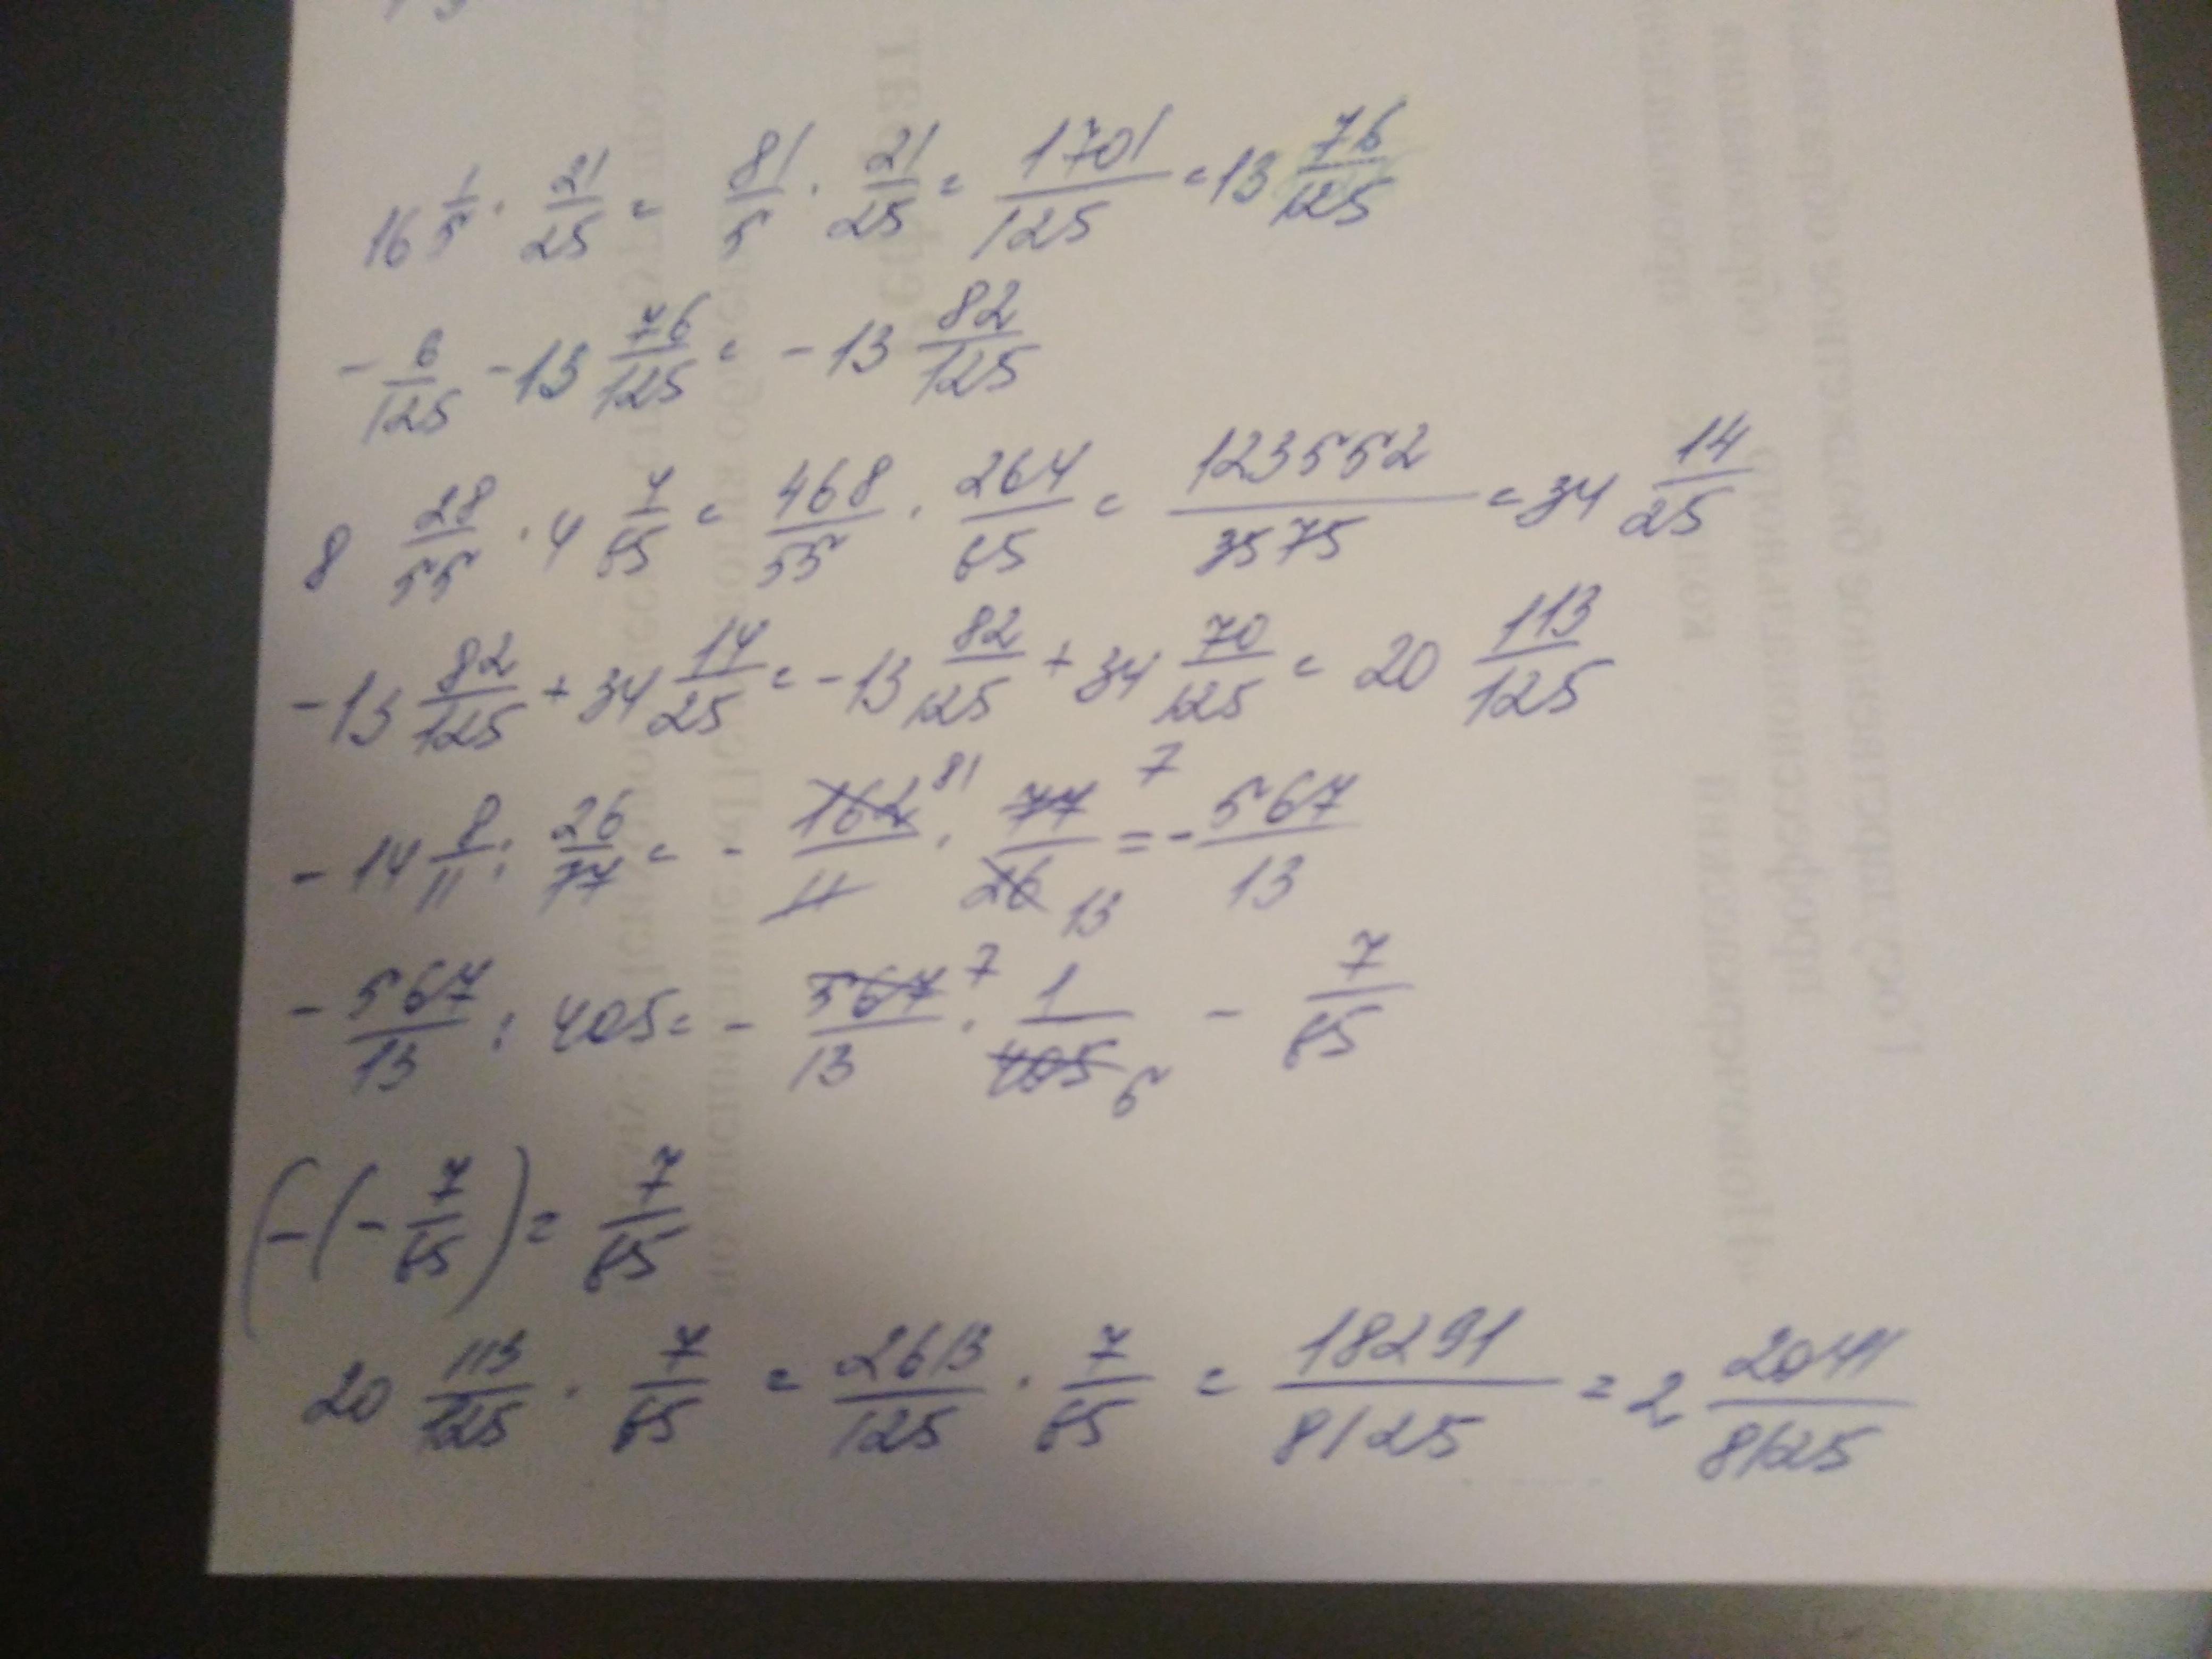 16 1/5 · 21/25 = 81/5 · 21/25 = 1701/125 = 13 76/125
- 6/125 - 13 76/125 = - 13 82/125
8 28/55 · 4 4/65 = 468/55 · 264/65 = 123552/3575 = 34 14/25
- 13 82/125 + 34 14/25 = - 13 82/125 + 34 70/125 = 20 113/125
- 14 8/11 : 26/77 = - 162/11 81 · 77/26 7 13 = - 567/13
- 567/13 : 405 = - 567/13 7 · 1/405 5 - 7/65
(-(- 7/65) = 7/65
20 113/125 · 7/65 = 2613/125 · 7/65 = 18291/8125 = 2 2041/8125